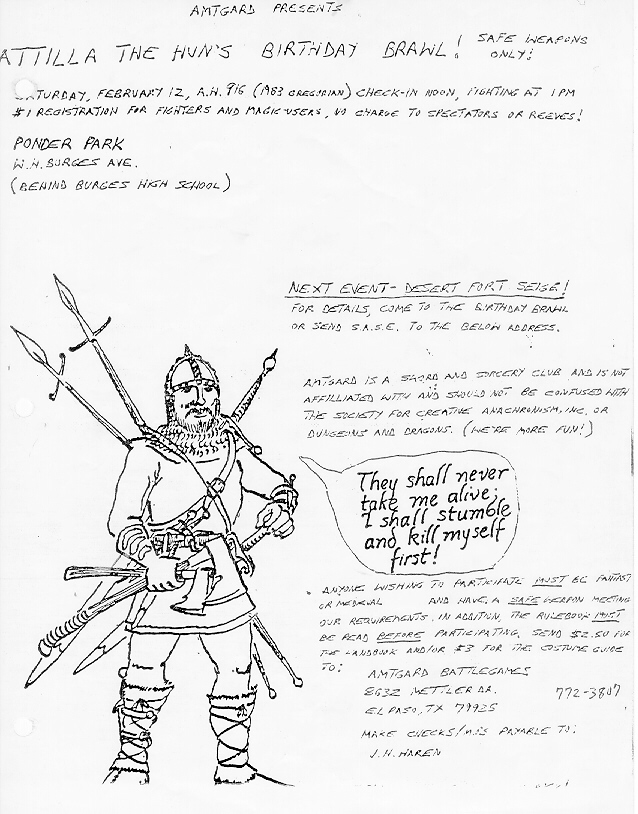 AMTGARD PRESENTS
ATTILLA THE HUN'S BIRTHDAY BRAWL! SAFE WEAPONS ONLY!
SATURDAY, FEBRUARY 12, A.H. 916 (1983 GREGORIAN) CHECK-IN NOON, FIGHTING AT 1 PM
$1 REGISTRATION FOR FIGHTERS AND MAGIC-USERS, NO CHARGE TO SPECTATORS OR REEVES!
PONDER PARK
W.H. BURGES AVE.
(BEHIND BURGES HIGH SCHOOL)
NEXT EVENT- DESERT FORT SEIGE!
FOR DETAILS, COME TO THE BIRTHDAY BRAWL
OR SEND S.A.S.E. TO THE BELOW ADDRESS.
AMTGARD IS A SWORD AND SORCERY CLUB AND IS NOT
AFFILLIATED WITH AND SHOULD NOT BE CONFUSED WITH
THE SOCIETY FOR CREATIVE ANACHRONISM, INC. OR
DUNGEONS AND DRAGONS. (WE'RE MORE FUN!)
They shall never
take me alive;
I shall stumble
and kill myself
first!
ANYONE WISHING TO PARTICIPATE MUST BE
OR MEDIEVAL AND HAVE A SAFE WEAPON MEETING
OUR REQUIREMENTS. IN ADDITION, THE RULEBOOK MUST
BE READ BEFORE PARTICIPATING. SEND $2.50 FOR
THE LANDBOOK AND/OR $3 FOR THE COSTUME GUIDE
TO: AMTGARD BATTLEGAMES
8632 METTLER DR. 772-3807
EL PASO, TX 79925
MAKE CHECKS/M.O.'S PAYABLE TO:
J.H. HAREN